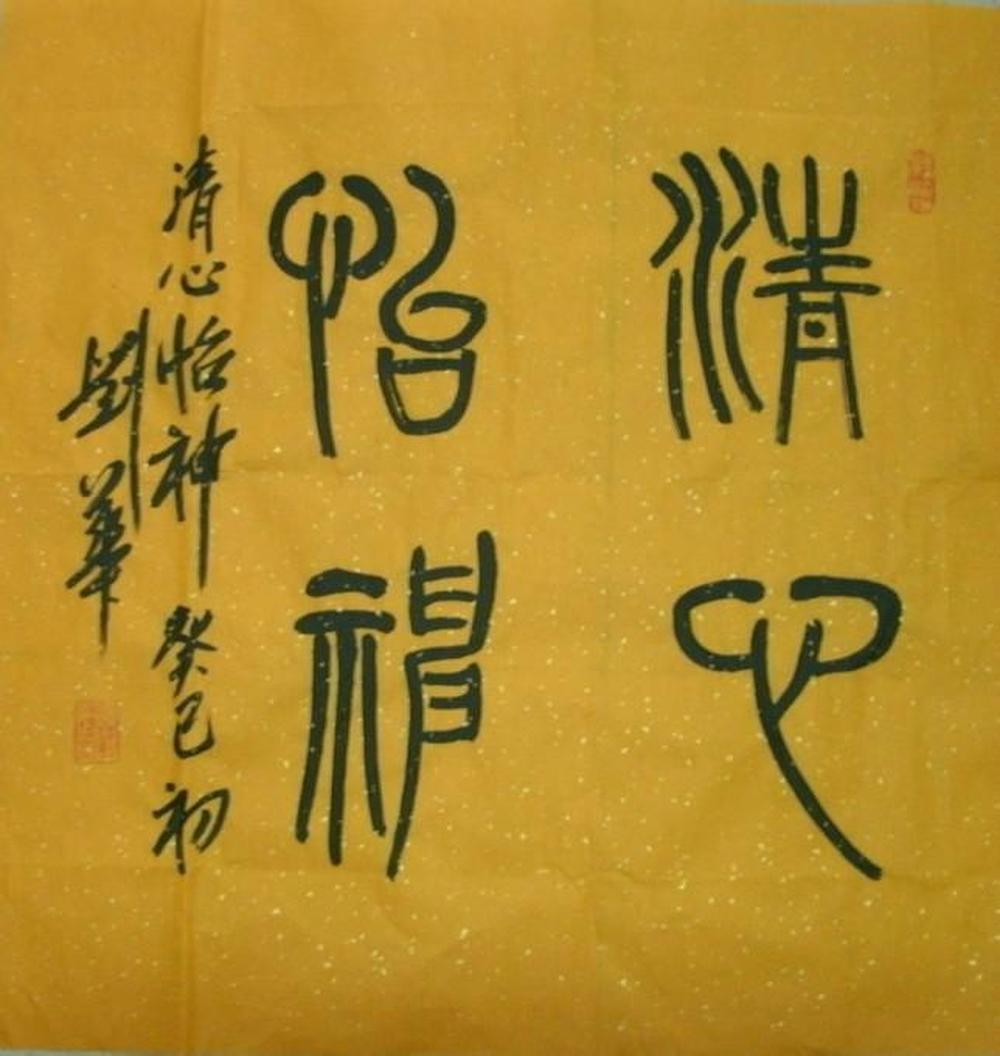 清心
怡神
清心怡神 癸巳初
劉華